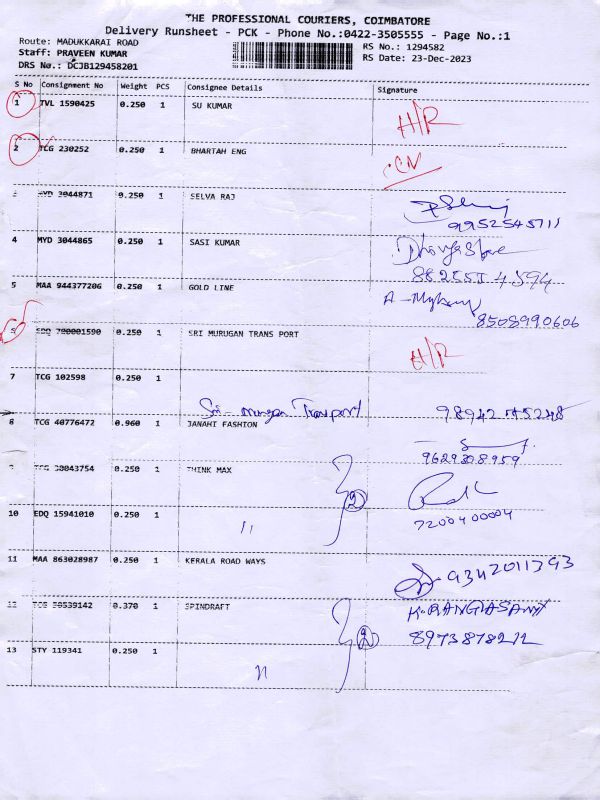 THE PROFESSIONAL COURIERS, COIMBATORE
Delivery Runsheet - PCK - Phone No.:0422-3505555 - Page No.:1
Route: MADUKKARAI ROAD RS No.: 1294582
Staff: PRAVEEN KUMAR RS Date: 23-Dec-2023
DRS No.: DCJB129458201
S No Consignment No Weight PCS Consignee Details Signature
1 TVL 1590425 0.250 1 SU KUMAR H/R
2 TCG 230252 0.250 1 BHARTAH ENG CN
3 MYD 3044871 0.250 1 SELVA RAJ
9952545711
4 MYD 3044865 0.250 1 SASI KUMAR
5 MAA 944377206 0.250 1 GOLD LINE
8508990606
EDQ 700001590 0.250 1 SRI MURUGAN TRANS PORT H/R
7 TCG 102598 0.250 1
Sri - murugan Transport
8 TCG 40776472 0.960 1 JANAHI FASHION
9629308959
30043754 0.250 1 THINK MAX 2
7200400004
10 EDQ 15941010 0.250 1 "
11 MAA 863028987 0.250 1 KERALA ROAD WAYS 9342011393
12 TCG 30539142 0.370 1 SPINDRAFT K. RANGASAMY
2
13 STY 119341 0.250 1 "